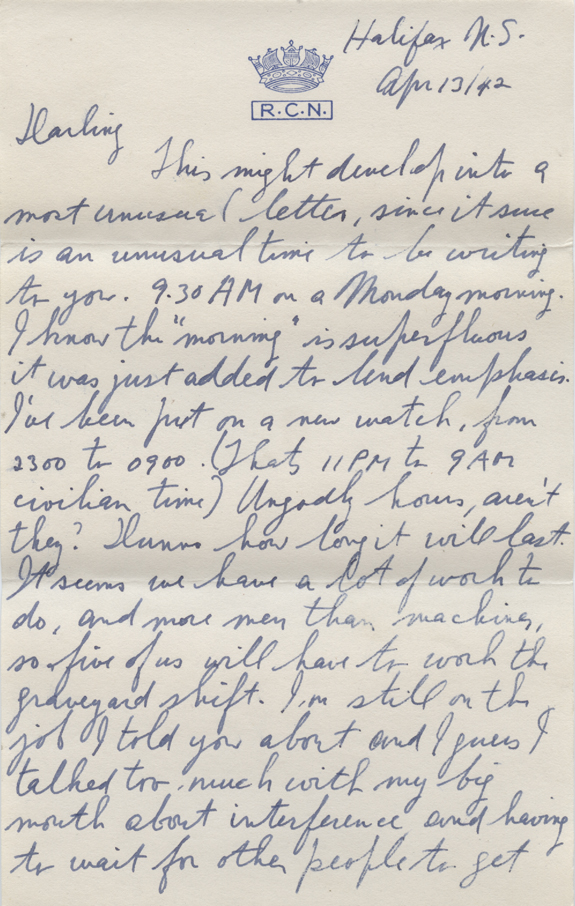 Halifax N.S.
Apr 13/42
R.C.N.
Darling
This might develop into a
most unusual letter, since it sure
is an unusual time to be writing
to you. 9.30 AM on a Monday morning.
I know the "morning" is superfluous
it was just added to lend emphasis.
I've been put on a new watch, from
2300 to 0900. (Thats 11PM to 9AM
civilian time) Ungodly hours, aren't
they? Dunno how long it will last.
It seems we have a lot of work to
do, and more men than machines,
so five of us will have to work the
graveyard shift. I'm still on the
job I told you about and I guess I
talked too much with my big
mouth about interference and having
to wait for other people to get